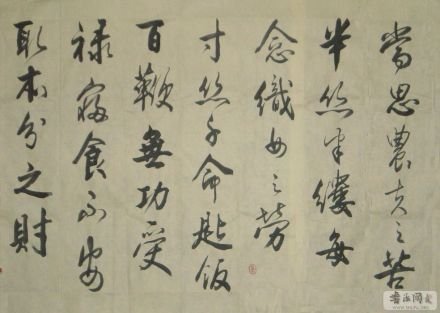 當思農夫之苦
半丝半縷每
念織女之勞
寸丝千命匙飯
百鞭無功受
禄寢食不安
取本分之財
书法网